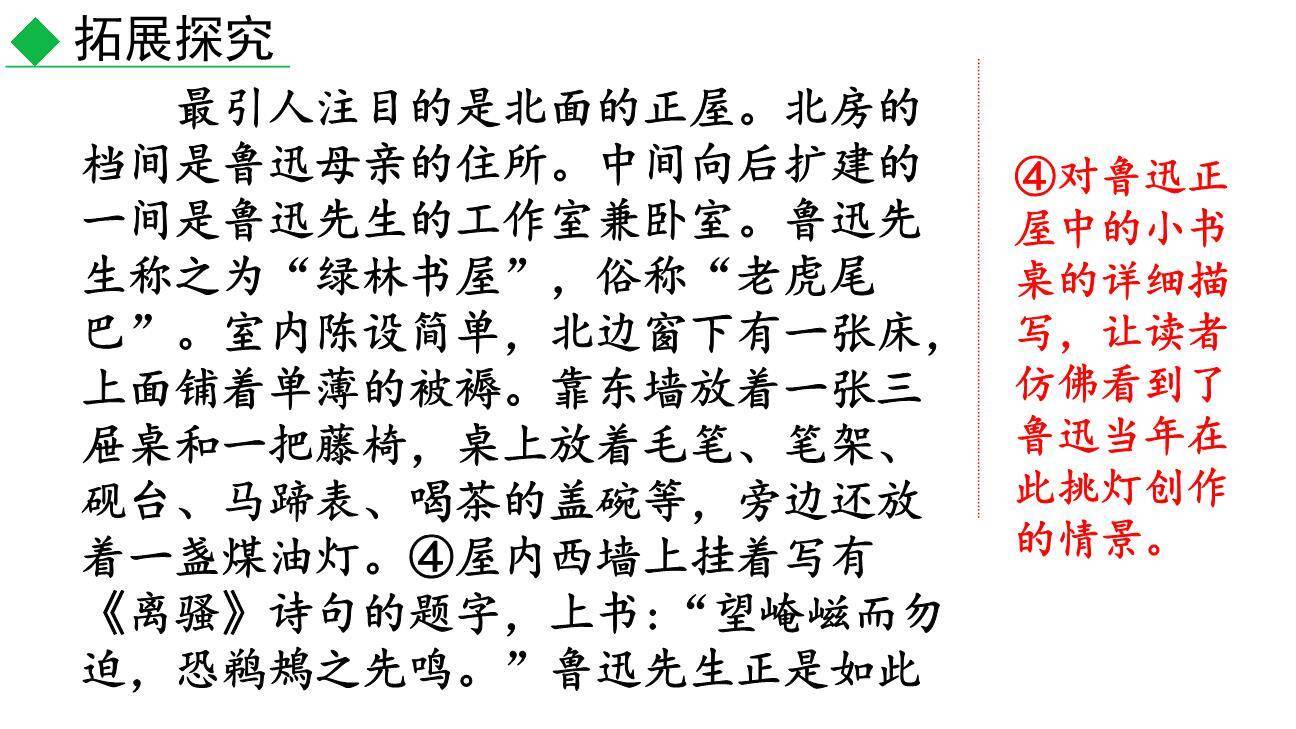 拓展探究
最引人注目的是北面的正屋。北房的
档间是鲁迅母亲的住所。中间向后扩建的
一间是鲁迅先生的工作室兼卧室。鲁迅先
生称之为“绿林书屋”，俗称“老虎尾
巴”。室内陈设简单，北边窗下有一张床，
上面铺着单薄的被褥。靠东墙放着一张三
屉桌和一把藤椅，桌上放着毛笔、笔架、
砚台、马蹄表、喝茶的盖碗等，旁边还放
着一盏煤油灯。④屋内西墙上挂着写有
《离骚》诗句的题字，上书：“望崦嵫而勿
迫，恐鹈鴂之先鸣。”鲁迅先生正是如此
④对鲁迅正
屋中的小书
桌的详细描
写，让读者
仿佛看到了
鲁迅当年在
此挑灯创作
的情景。